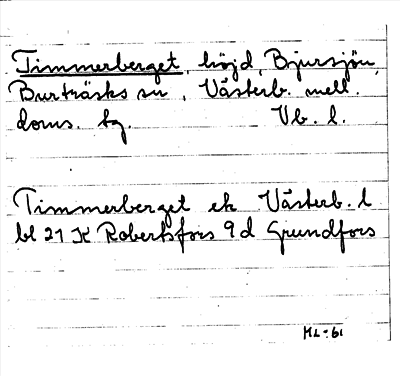 Timmerberget, höjd, Bjursjön,
Burträsks sn, Västerb. mell.
doms. tg. Vb. l.
Timmerberget ek Västerb. l
bl 21 K Robertsfors 9 d Grundfors
HL-61